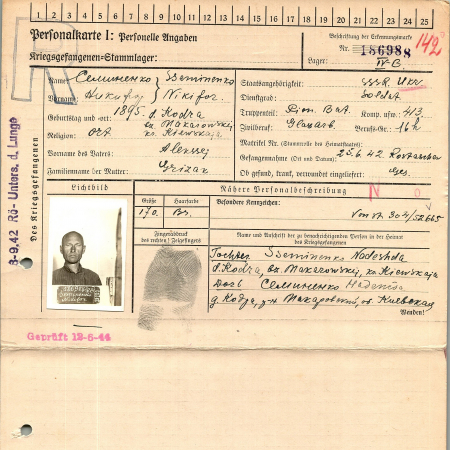 1 2 3 4 5 6 7 8 9 10 11 12 13 14 15 16 17 18 19 20 21 22 23 24 25
R
Personalkarte I: Personelle Angaben
Kriegsgefangenen-Stammlager:
Beschriftung der Erkennungsmarke
Nr. 186988
142
Lager: IV-B.
Des Kriegsgefangenen
Name: Семиненко Sseminenko
Vorname: Никифор Nikifor
Geburtstag und -ort: 1895. d. Kodra
bz. Makarowskij
kr. Kiewskaja
Religion: ort
Vorname des Vaters: Alexsej
Familienname der Mutter:
Staatsangehörigkeit: Ukr
Dienstgrad: Soldat
Truppenteil: Pion. Bat. Komp. usw.: 413
Zivilberuf: Glasarb. Berufs-Gr.: 16
Matrikel Nr. (Stammrolle des Heimatstaates):
Gefangennahme (Ort und Datum): 25.6.42
Ob gesund, krank, verwundet eingeliefert: Ges.
8-9.42 Rö-Unters. d. Lunge
Lichtbild
Nähere Personalbeschreibung
N
Größe
Haarfarbe
Besondere Kennzeichen:
170.
Br.
Von
Fingerabdruck
des rechten! Zeigefingers
Name und Anschrift der zu benachrichtigenden Person in der Heimat
des Kriegsgefangenen
Tochter Sseminenko Nadeshda
d. Kodra, bz. Makarowskij, kr. Kiewskaja
Дочь Семиненко Надежда
д. Кодра, р-н Макаровский, об. Киевская
Wenden!
Geprüft 12-6-44